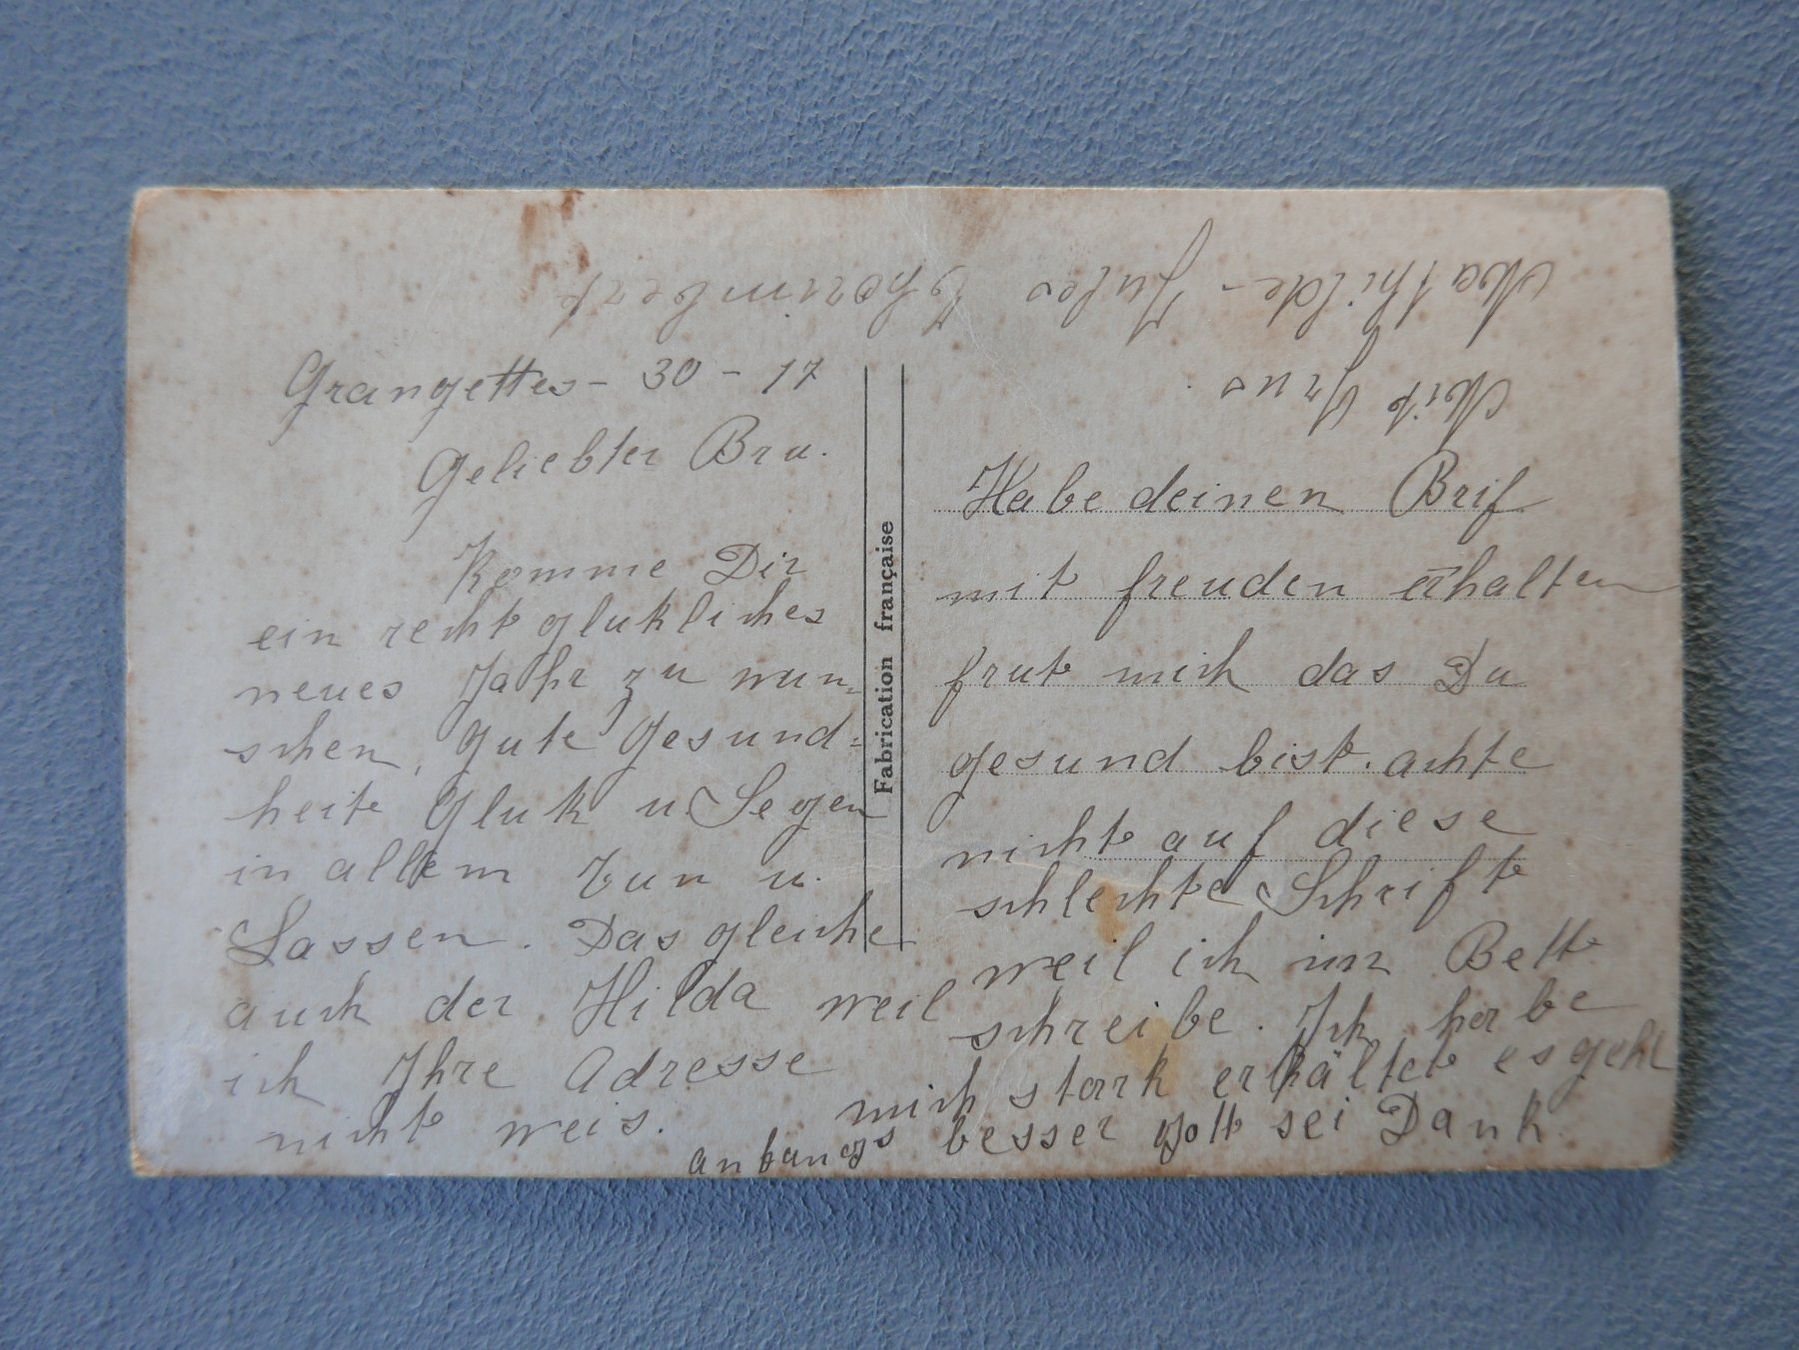 Grangettes - 30 - 17
Geliebter Bru.
Komme Dir
ein recht glukliches
neues Jahr zu wun-
schen, gute Gesund=
heit Gluk u Segen
in allem Tun u.
Lassen. Das gleiche
auch der Hilda weil
ich Ihre Adresse
nicht weis.
Fabrication française
Habe deinen Brif
mit freuden erhalten
frut mich das Du
gesund bist. achte
nicht auf diese
schlechte Schrift
weil ich im Bett
schreibe. Ich habe
mich stark erkältet es geht
anfangs besser gott sei Dank
Mit Grus
Mathilde - Jules